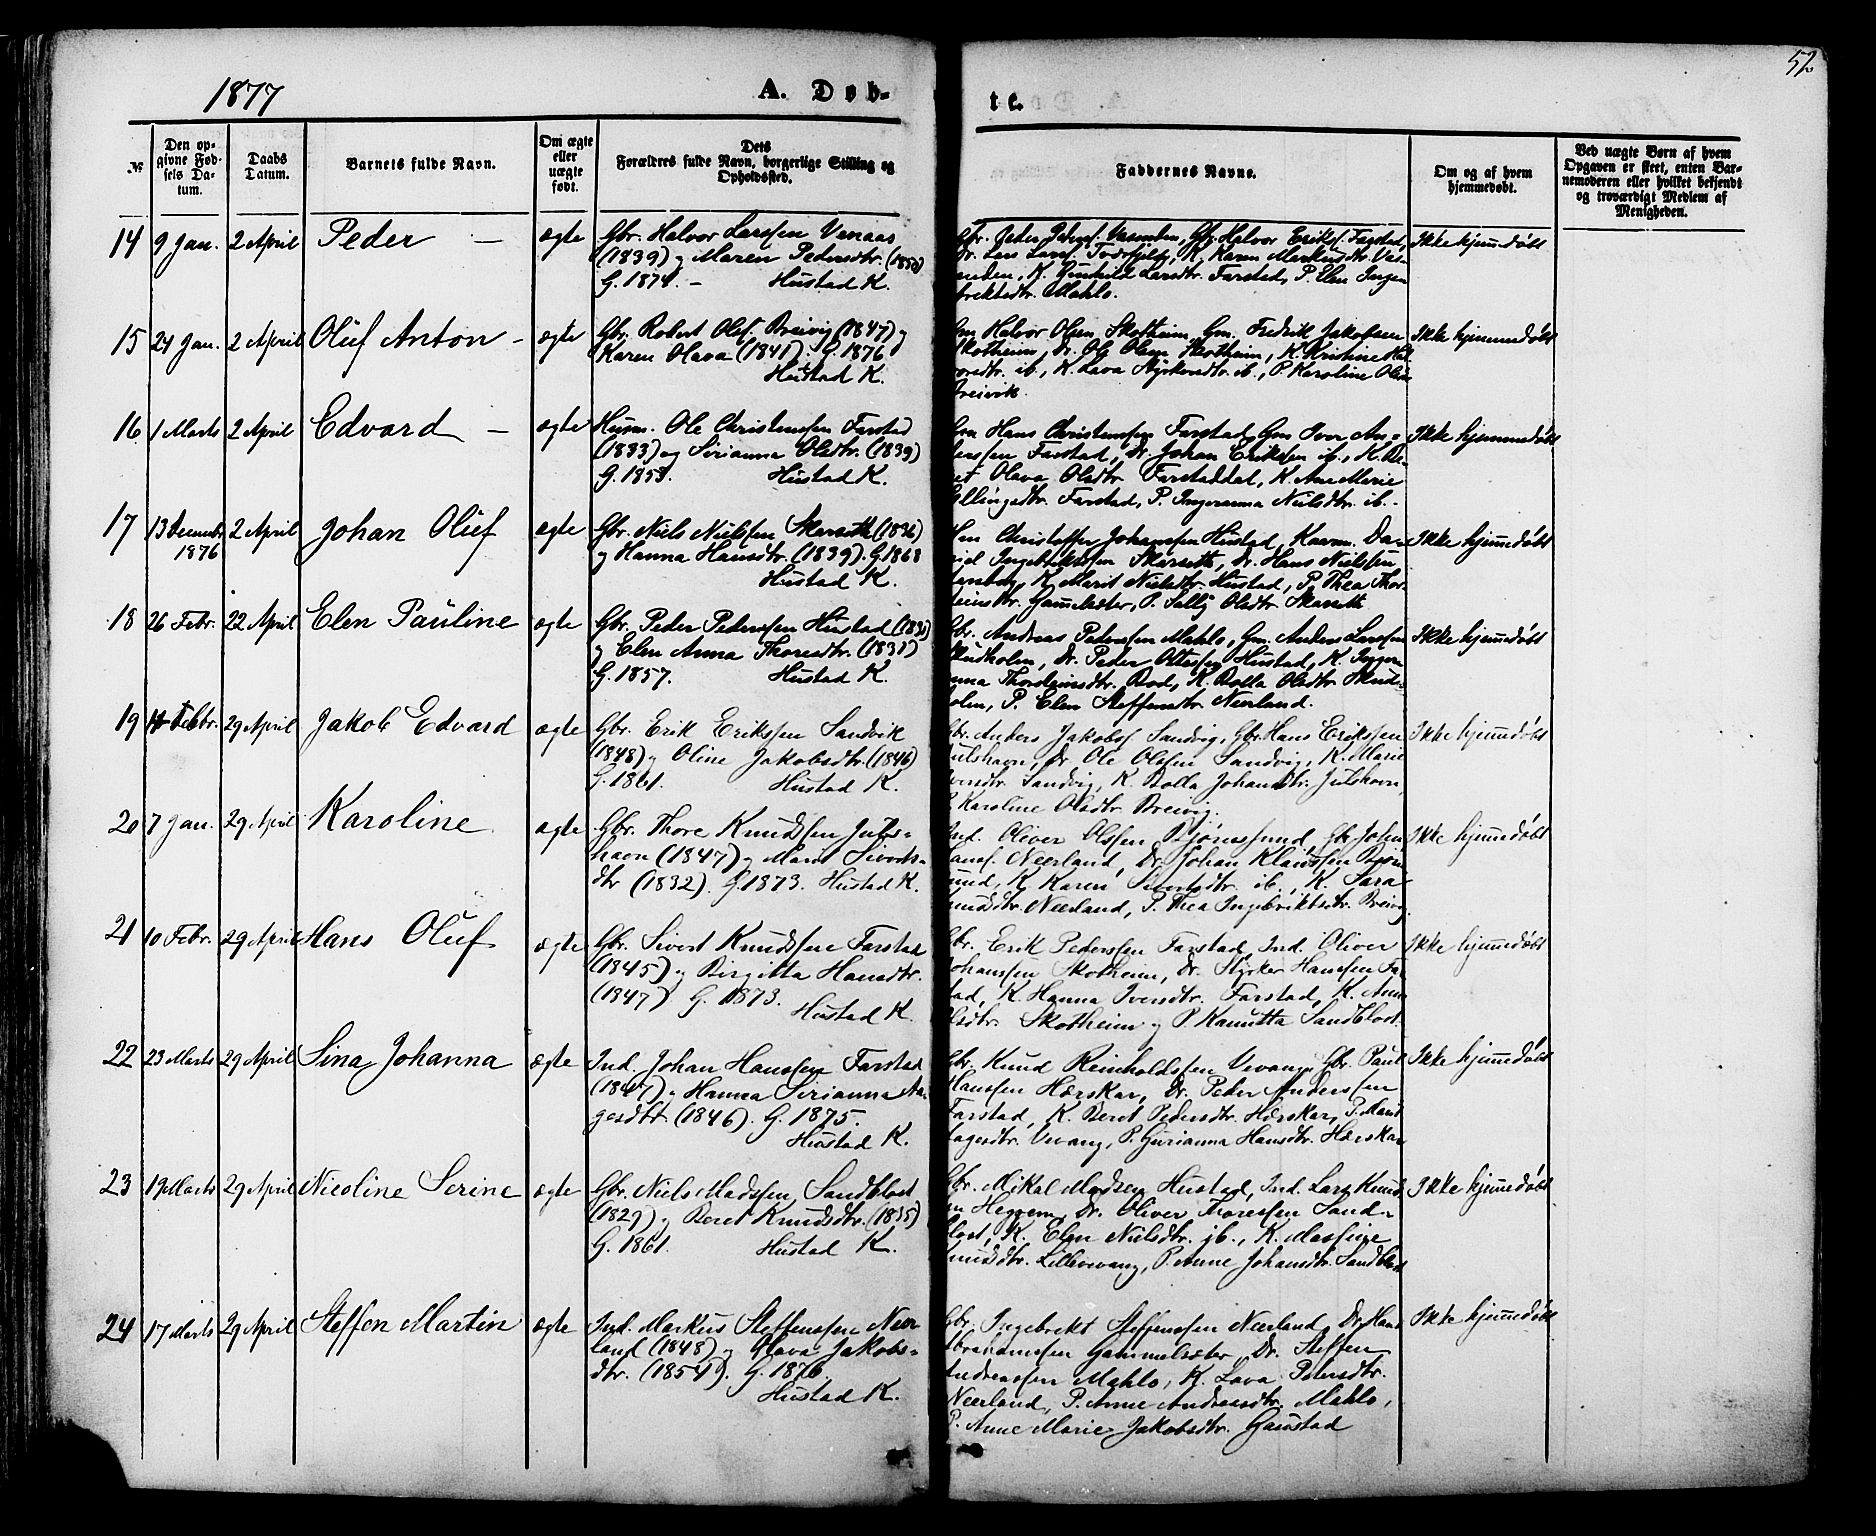 1877
A. Døb-
te.
52
№
Den op-
givne Fød-
sels Da-
tum.
Daabs
Datum.
Barnets fulde Navn.
Om ægte
eller
uægte
født.
Dets
Forældres fulde Navn, borgerlige Stilling og
Opholdssted.
Faddernes Navne.
Om og af hvem
hjemmedøbt.
Ved uægte Børn af hvem
Opgaven er skeet, enten Bar-
nemoderen eller hvilket bekjendt
og troværdigt Medlem af
Menigheden.
14 9 Jan. 2 April Peder – ægte
Gbr. Halvor Larssen Venaas
(1839) og Maren Pedersdtr.
G. 1874. – Hustad K.
Halvor Eriks. Farstad,
K. Karen Markusdtr.
K. Gunhild Larsdtr. Farstad, P. Elen Inge-
brektsdtr. Mahlo.
Ikke hjemmedøbt
15 24 Jan. 2 April Oluf Anton – ægte
Gbr. Robert Ols. Breivig (1847) og
Karen Olava (1841). G. 1876
Hustad K.
Halvor Olsen Skotheim, Gm. Fredrik Jakobsen
Skotheim, Dr. Ole Olsen Skotheim, K. Kristine Hal-
vorsdtr. ib., K. Lava Styrkersdtr. ib., P. Karoline Olsdtr.
Breivik.
Ikke hjemmedøbt
16 1 Marts 2 April Edvard – ægte
Husm. Ole Christenssen Farstad
(1833) og Sirianna Olsdtr. (1839)
Hustad K.
Gm Hans Christenssen Farstad, Gm Iver An-
derssen Farstad, Dr. Johan Erikssen ib., K. Be-
ret Olava Olsdtr. Farstaddal, K. Ane Marie
Ellingsdtr. Farstad, P. Ingeranna Nielsdtr. ib.
Ikke hjemmedøbt
17 13 Decembr 1876 2 April Johan Oluf ægte
Gbr. Niels Nielssen Skarseth (1836)
og Hanna Hansdtr. (1839). G. 1868
Hustad K.
Christoffer Johanssen Hustad, Da-
vid Ingebrektssen Skarseth, Dr. Hans Nielssen
K. Marit Nielsdtr. Hustad, P. Thea Thor-
steinsdtr. Gammelsæter, P. Sally Olsdtr. Skarseth
Ikke hjemmedøbt
18 26 Febr. 22 April Elen Pauline ægte
Gbr. Peder Pederssen Hustad
og Elen Anna Thoresdtr. (1831)
G. 1857. Hustad K.
Gbr. Andreas Pederssen Mahlo, Gm. Anders Larssen
Skudholm, Dr. Peder Ottessen Hustad, K. Inger
Anna Thorsteinsdtr. Bod, K. Bolla Olsdtr. Skud-
holm, P. Elen Steffensdtr. Neerland.
Ikke hjemmedøbt
19 Febr. 29 April Jakob Edvard ægte
Gbr. Erik Erikssen Sandvik
(1848) og Oline Jakobsdtr. (1846)
G. 1861. Hustad K.
Gbr. Anders Jakobs. Sandvig, Gbr. Hans Erikssen
Julshavn, Dr. Ole Olssen Sandvig, K. Marie
Iversdtr. Sandvig, K. Bolla Johansdtr. Julshavn,
P. Karoline Olsdtr. Breivig.
Ikke hjemmedøbt
20 7 Jan. 29 April Karoline ægte
Gbr. Thore Knudssen Juls-
havn (1847) og Marit Siverts-
dtr (1832). G. 1873. Hustad K.
Ind. Oliver Olssen Bjørnssund, Gbr.
Neerland, Dr. Johan Klaussen Bjørn-
sund, K. Karen Sivertsdtr. ib., K. Sara
Knudsdtr. Neerland, P. Thea Ingebriktsdtr. Breivig
Ikke hjemmedøbt
21 10 Febr. 29 April Hans Oluf ægte
Gbr. Sivert Knudssen Farstad
(1845) og Birgitta Hansdtr.
(1847) G. 1873.
Hustad K.
Gbr. Erik Pederssen Farstad, Ind. Oliver
Johanssen Skotheim, Dr. Styrker Hanssen Far-
stad, K. Hanna Iversdtr. Farstad, K. Anne
Olsdtr. Skotheim og P. Kanutta Sandblost.
Ikke hjemmedøbt
22 23 Marts 29 April Sina Johanna ægte
Ind. Johan Hanssen Farstad
(1847) og Hanna Sirianna Aa-
gesdtr. (1846). G. 1875.
Hustad K.
Gbr. Knud Reinholdssen Vevang, Gbr. Paul
Hanssen Hærskar, Dr. Peder Anderssen
Farstad, K. Beret Pedersdtr. Hærskar, P. Marit
Aagesdtr. Vevang, P. Gurianna Hansdtr. Hærskar
Ikke hjemmedøbt
23 19 Marts 29 April Nicoline Serine ægte
Gbr. Niels Madssen Sandblost
(1829) og Beret Knudsdtr. (1835)
G. 1861. Hustad K.
Gbr. Mikal Madsen Hustad, Ind. Lars Knud-
sen Heggem, Dr. Oliver Thoressen Sand-
blost, K. Elen Nielsdtr. ib., K. Massine
Knudsdtr. Lillevevang, P. Anne Johansdtr. Sandblost
Ikke hjemmedøbt
24 17 Marts 29 April Steffen Martin ægte
Ind. Markus Steffenssen Neer-
land (1848) og Olava Jakobs-
dtr. (1854). G. 1876.
Hustad K.
Gbr. Ingebrekt Steffenssen Neerland, Dr. Hans
Gammelsæter, Dr. Steffen
Andreassen Mahlo, K. Lava Petersdtr.
Neerland, P. Anne Andreasdtr. Mahlo,
P. Anne Marie Jakobsdtr. Gaustad
Ikke hjemmedøbt